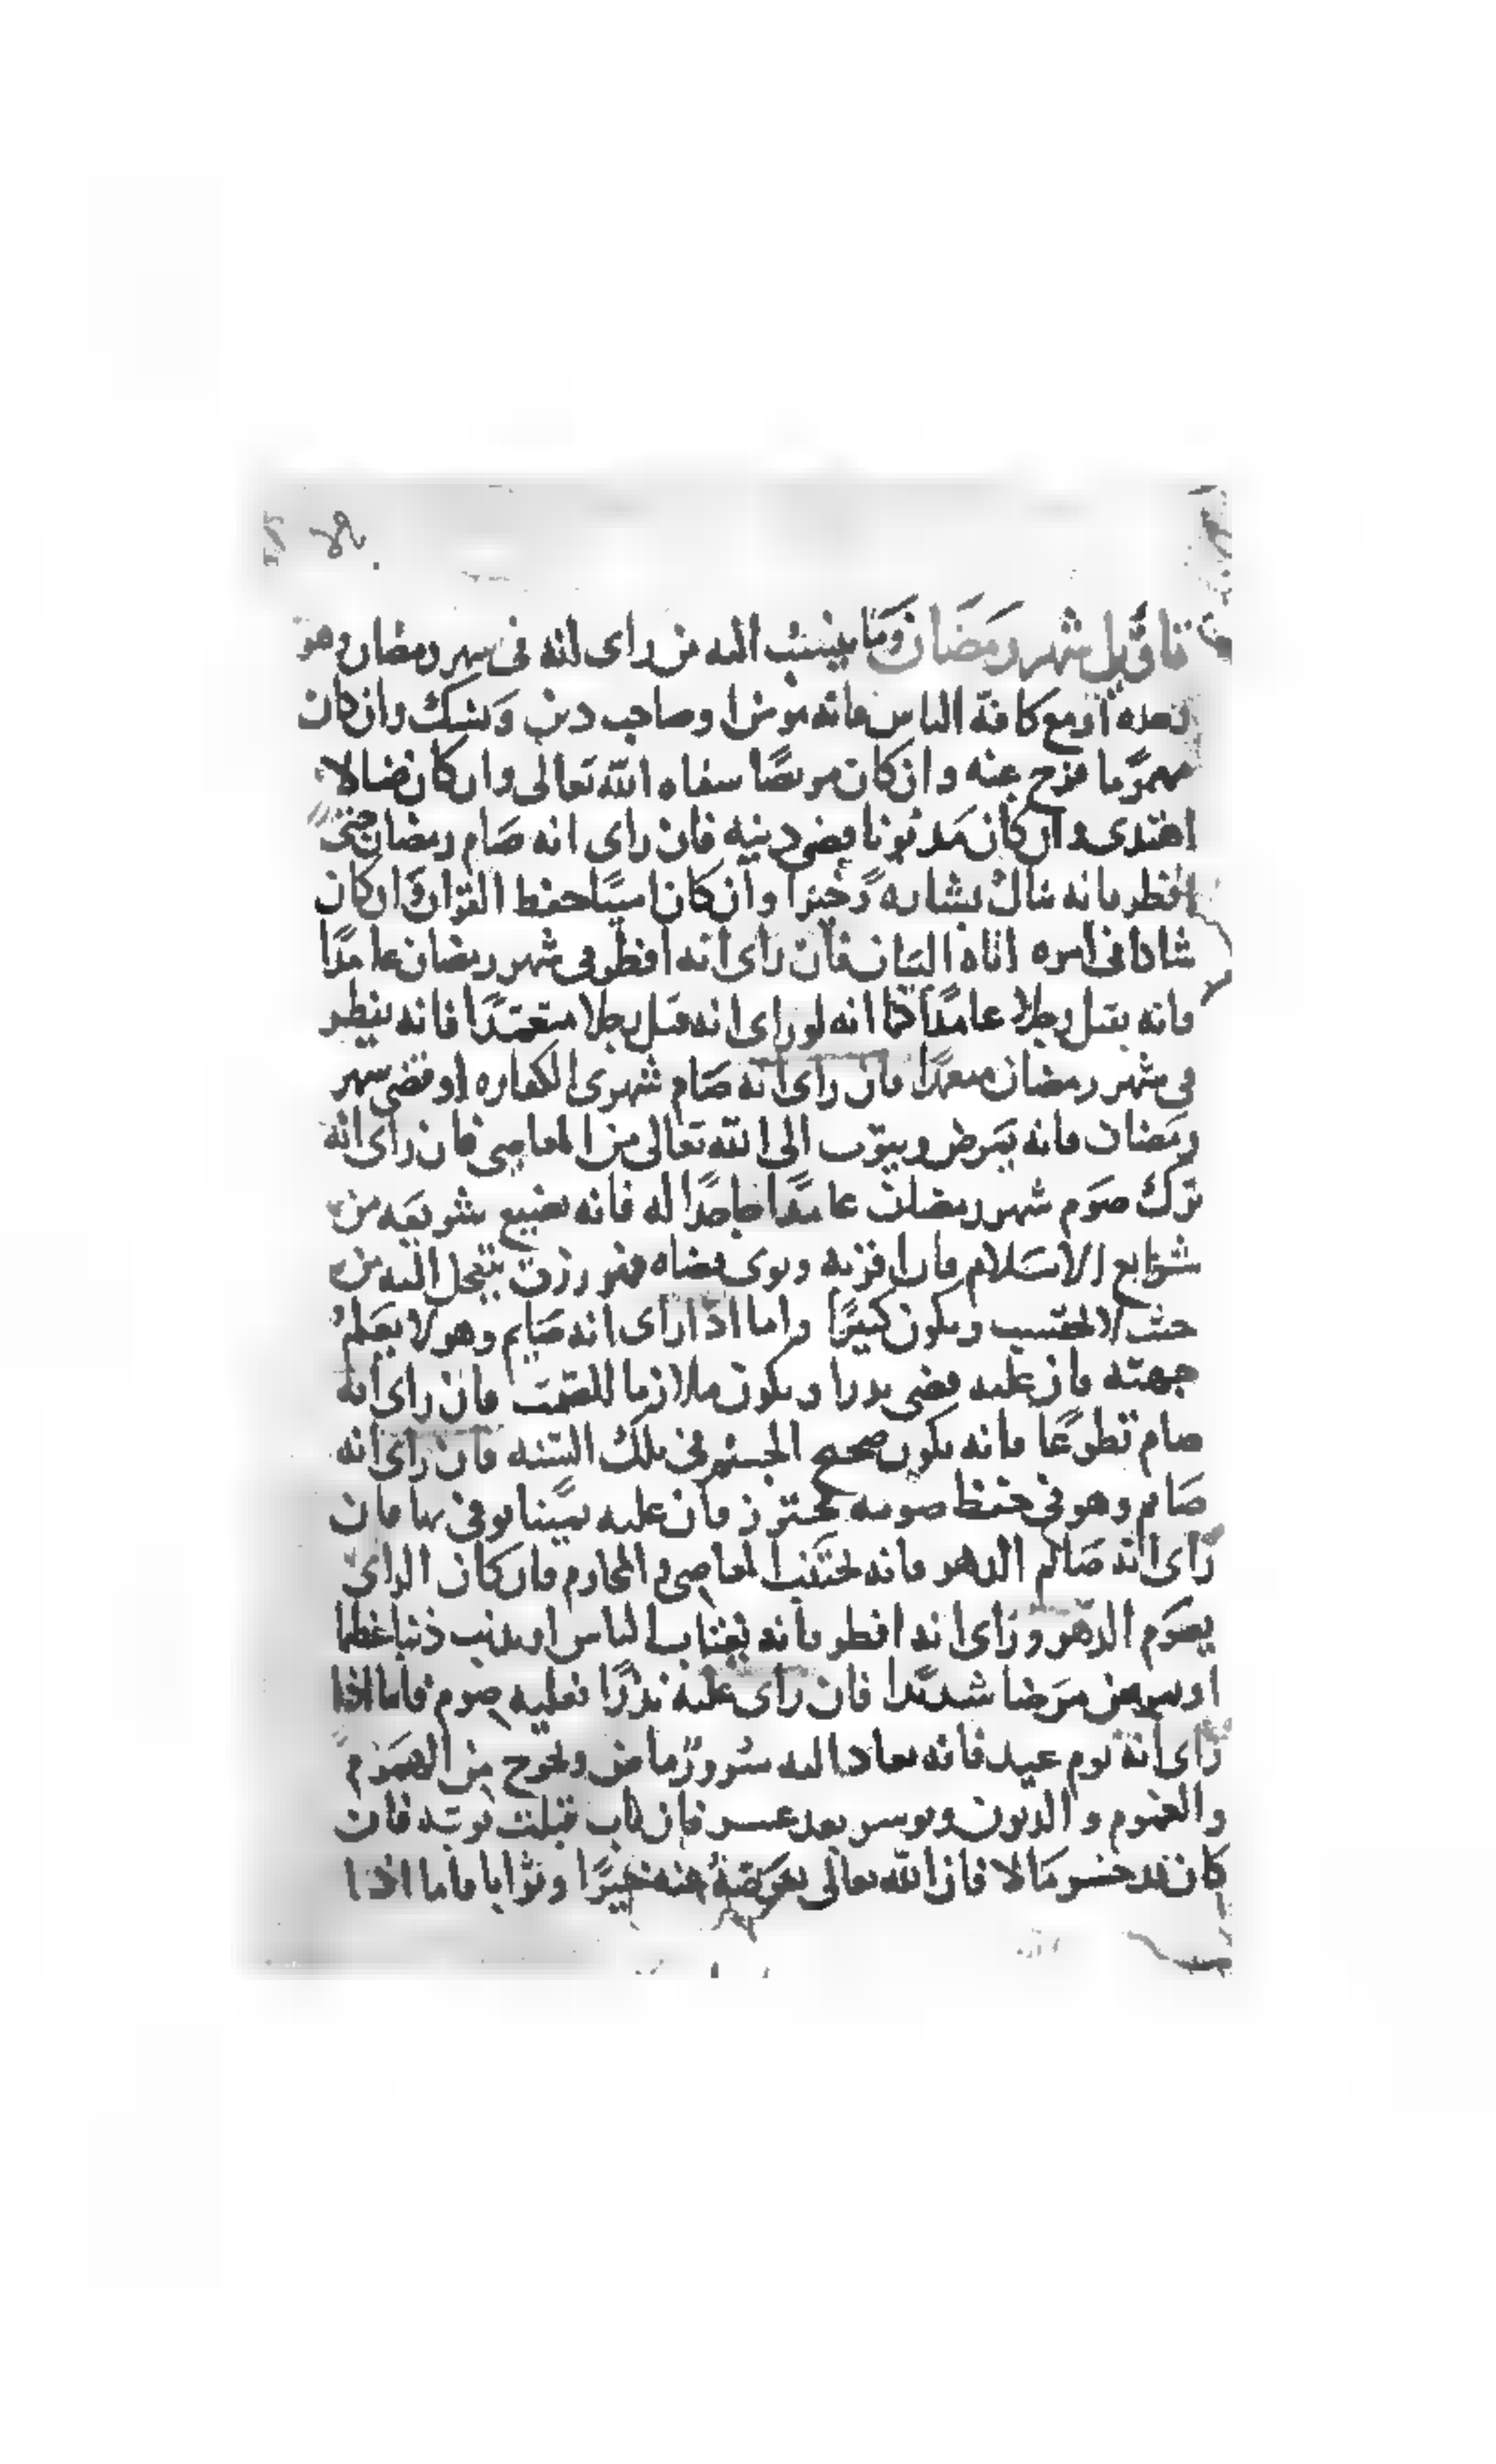 تاويل شهر رمضان وما ينسب اليه من راى انه في شهر رمضان وهو
وحده او مع كافة الناس فانه مومن وصاحب دين ونسك وان كان
مهموما فرج عنه وان كان مريضا شفاه الله تعالى وان كان ضالا
اهتدى وان كان مديونا قضى دينه فان راى انه صام رمضان حتى
افطر فانه ينال بشاره وخيرا وان كان اميا حفظ القران وان كان
شاكا في امره اتاه البيان فان راى انه افطر في شهر رمضان عامدا
فانه يقتل رجلا عامدا كما انه لو راى انه قتل رجلا متعمدا فانه يفطر
في شهر رمضان متعمدا فان راى انه صام شهرى الكفاره او قضى شهر
رمضان فانه يمرض ويتوب الى الله تعالى من المعاصي فان راى انه
ترك صوم شهر رمضان عامدا جاحدا له فانه يضيع شريعه من
شرايع الاسلام فان اقر به ونوى قضاه فهو رزق يتعجل اليه من
حيث لا يحتسب ويكون كثيرا واما اذا راى انه صايم وهو لا يعلم
جهته فان عليه قضى نذرا ويكون ملازما للصمت فان راى انه
صام تطوعا فانه يكون صحيح الجسم في تلك السنه فان راى انه
صام وهو في حفظ صومه محترز فان عليه يمينا يوفي بها فان
راى انه صايم الدهر فانه يجتنب المعاصي والمحارم فان كان الراي
يصوم الدهر وراى انه افطر فانه يغتاب الناس او يذنب ذنبا عظيما
او يمرض مرضا شديدا فان راى عليه نذرا فعليه صوم فاما اذا
راى انه يوم عيد فانه يعاد اليه سرور ماض ويخرج من الهموم
والغموم والديون ويوسر بعد عسر فان تاب قبلت توبته فان
كان قد خسر مالا فان الله تعالى يعوضه عنه خيرا وثوابا فاما اذا